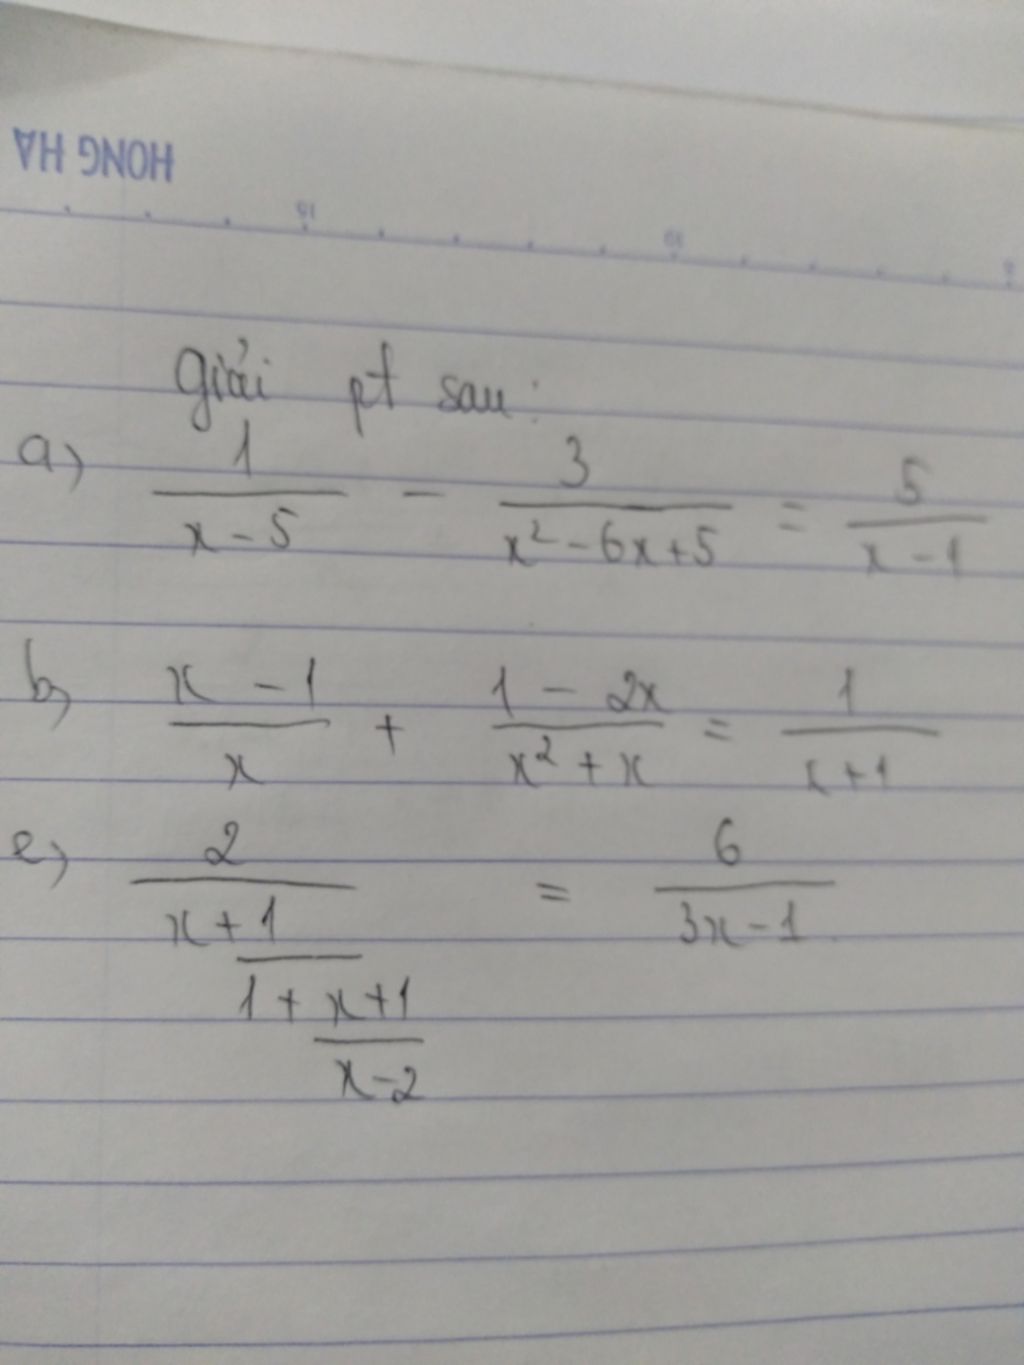 HONG HA
15 10 5
Giải pt sau:
a) 1/(x-5) - 3/(x²-6x+5) = 5/(x-1)
b) (x-1)/x + (1-2x)/(x²+x) = 1/(x+1)
e) 2/(x+1/(1+(x+1)/(x-2))) = 6/(3x-1)